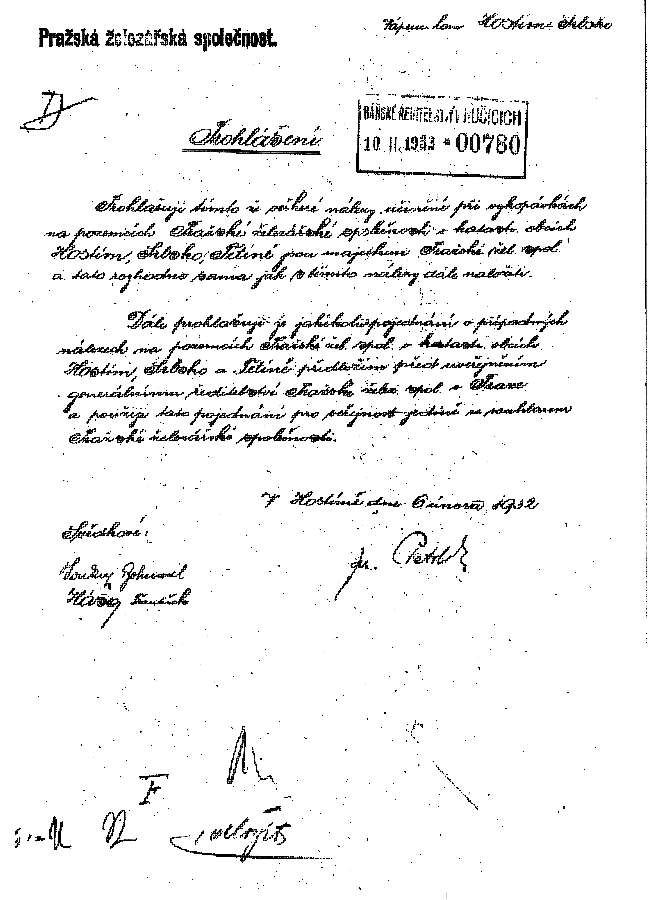 Pražská železářská společnost.
Vápen. lom Hostim - Srbsko
Prohlášení.
BÁŇSKÉ ŘEDITELSTVÍ V NUČICÍCH
10 II. 1933 * 00780
Prohlašuji tímto že veškeré nálezy učiněné při vykopávkách
na pozemcích Pražské železářské společnosti v katastr. obcích
Hostim, Srbsko, Tetíně jsou majetkem Pražské žel. spol.
a tato rozhodne sama jak s těmito nálezy dále naloží.
Dále prohlašuji že jakékoli pojednání o případných
nálezech na pozemcích Pražské žel. spol. v katastr. obcích
Hostim, Srbsko a Tetíně předložím před uveřejněním
generálnímu ředitelství Pražské želez. spol. v Praze
a použiji tato pojednání pro veřejnost jedině se souhlasem
Pražské železářské společnosti.
V Hostimě dne 6 února 1932
Svědkové:
Bohumil
Jr. Petrb
František
F
založit